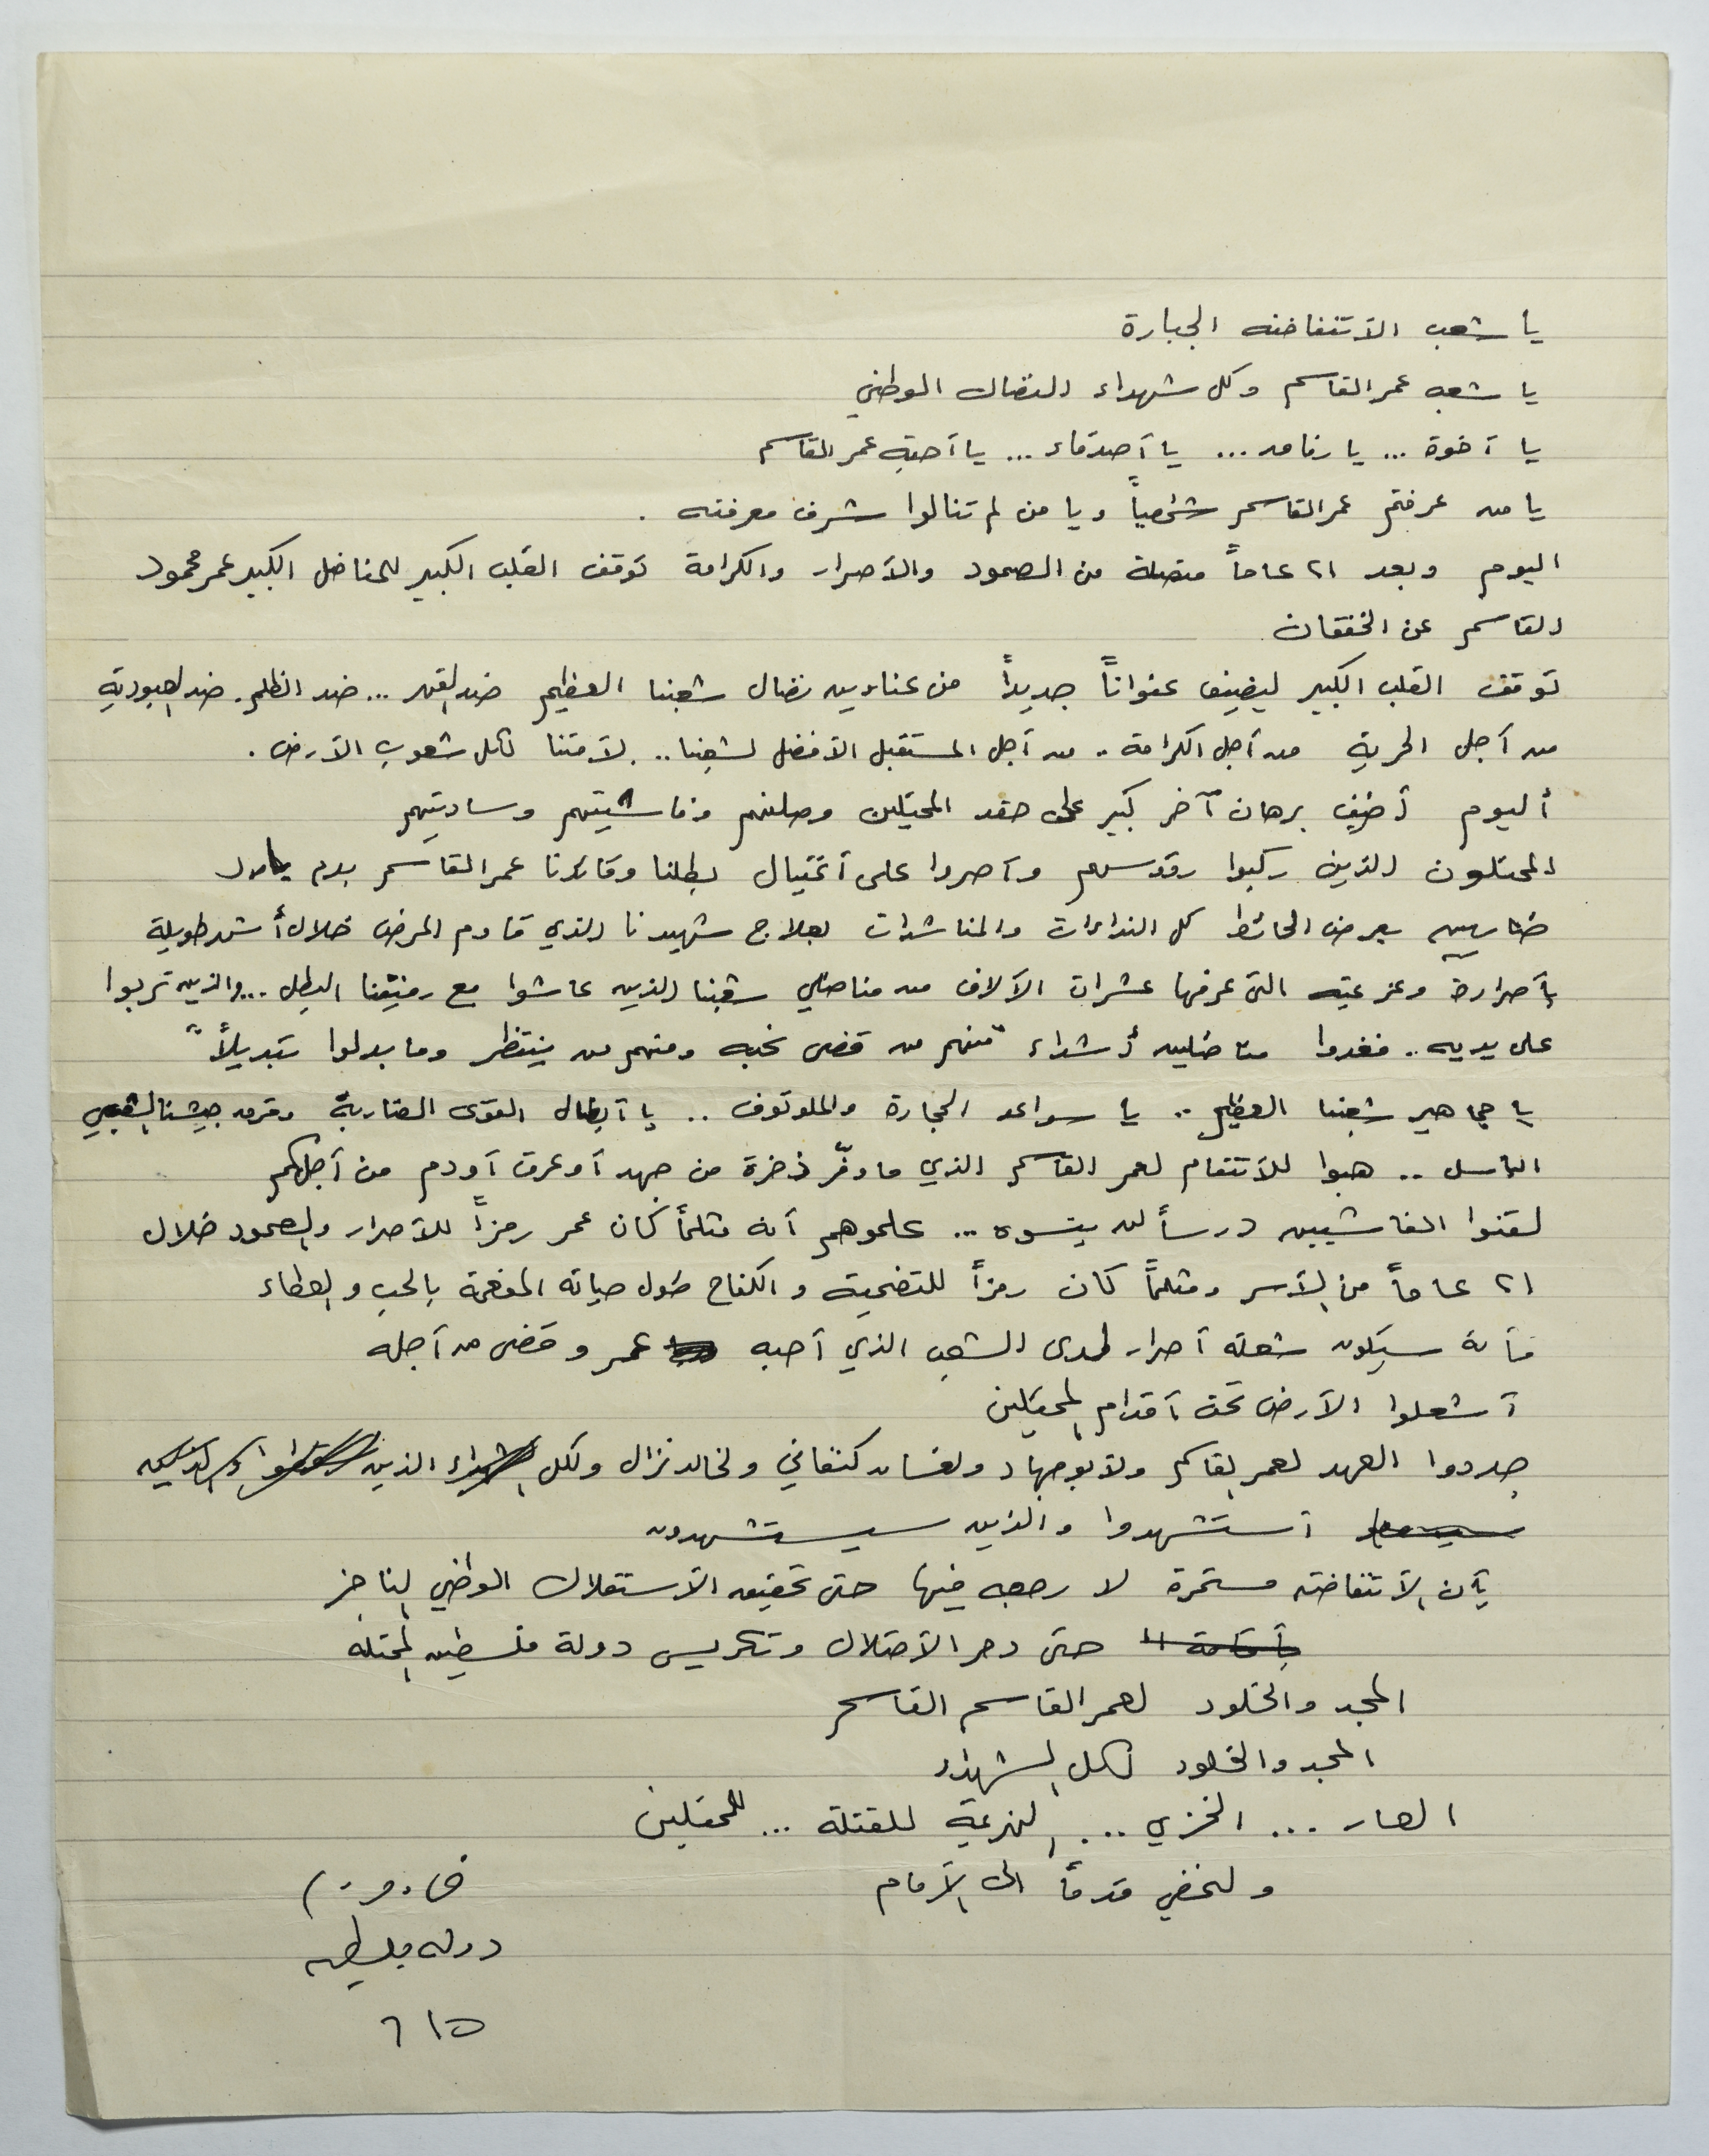 يا شعب الأنتفاضه الجبارة
يا شعب عمر القاسم وكل شهداء النضال الوطني
يا أخوة ... يا رفاق ... يا أصدقاء ... يا أحبة عمر القاسم
يا من عرفتم عمر القاسم شخصياً ويا من لم تنالوا شرف معرفته .
اليوم وبعد ٢١ عاماً متصلة من الصمود والأصرار والكرامة توقف القلب الكبير للمناضل الكبير عمر محمود
القاسم عن الخفقان
توقف القلب الكبير ليضيف عنواناً جديداً من عناوين نضال شعبنا العظيم ضد القهر ... ضد الظلم . ضد العبودية
من أجل الحرية من أجل الكرامة .. من أجل المستقبل الأفضل لشعبنا .. لأمتنا لكل شعوب الأرض .
أليوم أضيف برهان آخر كبير على حقد المحتلين وصلفهم وفاشيتهم وساديتهم
المحتلون الذين ركبوا رؤوسهم وأصروا على أغتيال بطلنا وقائدنا عمر القاسم بدم بارد
ضاربين بعرض الحائط كل النداءات والمناشدات لعلاج شهيدنا الذي قاوم المرض خلال أشهر طويلة
بأصراره وعزيمته التي عرفها عشرات الآلاف من مناضلي شعبنا الذين عاشوا مع رفيقنا البطل ... والذين تربوا
على يديه .. فغدوا مناضلين أشداء "منهم من قضى نحبه ومنهم من ينتظر وما بدلوا تبديلاً"
يا جماهير شعبنا العظيم .. يا سواعد الحجارة والملوتوف .. يا أبطال القوى الضاربة وفرق جيشنا الشعبي
الباسل .. هبوا للأنتقام لعمر القاسم الذي ما وفّر ذخرة من جهد أو عرق أو دم من أجلكم
لقنوا الفاشيين درساً لن ينسوه ... علموهم أنه مثلماً كان عمر رمزاً للأصرار والصمود خلال
٢١ عاماً من الأسر ومثلماً كان رمزاً للتضحية والكفاح طول حياته المفعمة بالحب والعطاء
فأنه سيكون شعلة أصرار لدى الشعب الذي أحبه عمر وقضى من أجله
أشعلوا الأرض تحت أقدام المحتلين
جددوا العهد لعمر القاسم ولأبو جهاد ولغسان كنفاني ولخالد نزال ولكل الشهداء الذين
أستشهدوا والذين سيستشهدون
بأن الأنتفاضه مستمرة لا رجعه فيها حتى تحقيق الأستقلال الوطني الناجز
بأقامة ال حتى دحر الأحتلال وتكريس دولة فلسطين المحتله
المجد والخلود لعمر القاسم القاسم
المجد والخلود لكل الشهداء
العار ... الخزي ... الهزيمة للقتلة ... للمحتلين
ولنمضي قدماً الى الأمام
دولة فلسطين
٦١٥